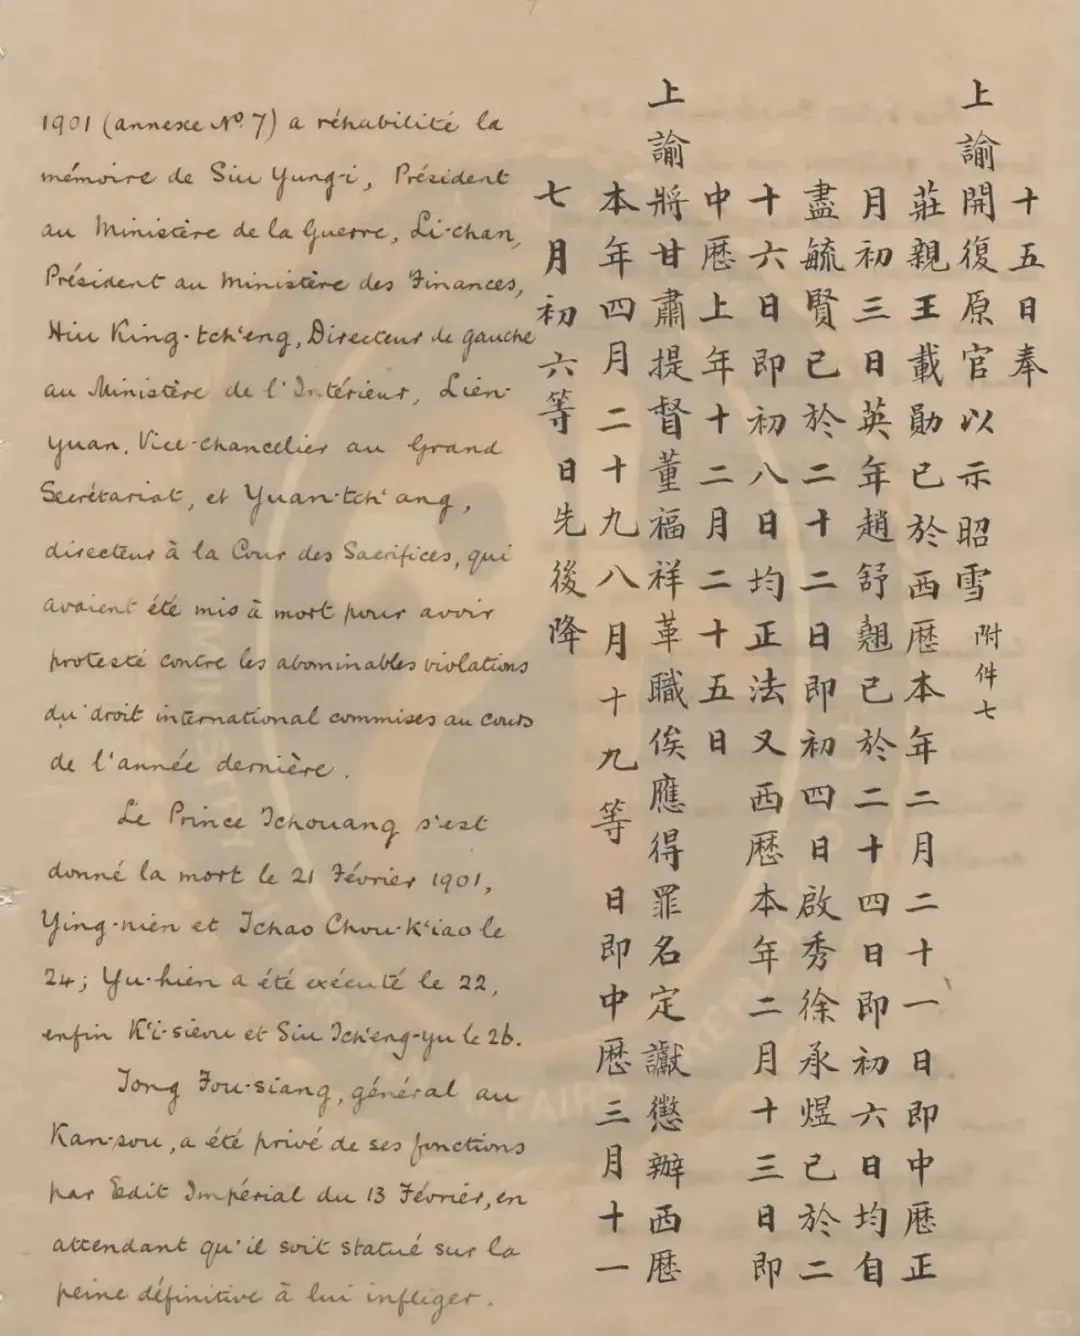 1901 (annexe No. 7) a réhabilité la
mémoire de Siu Yung-i, Président
au Ministère de la Guerre, Li-chan,
Président au Ministère des Finances,
Hiu King-tch'eng, Directeur de gauche
au Ministère de l'Intérieur, Lien-
yuan, Vice-chancelier au Grand
Secrétariat, et Yuan-tch'ang,
directeur à la Cour des Sacrifices, qui
avaient été mis à mort pour avoir
protesté contre les abominables violations
du droit international commises au cours
de l'année dernière.
Le Prince Tchouang s'est
donné la mort le 21 Février 1901,
Ying-nien et Tchao Chou-k'iao le
24; Yu-hien a été exécuté le 22,
enfin K'i-sieou et Siu Tch'eng-yu le 26.
Tong Fou-siang, général au
Kan-sou, a été privé de ses fonctions
par Edit Impérial du 13 Février, en
attendant qu'il soit statué sur la
peine définitive à lui infliger.
十五日奉
上諭開復原官以示昭雪附件七
莊親王載勛已於西暦本年二月二十一日即中暦正
月初三日英年趙舒翹已於二十四日即初六日均自
盡毓賢已於二十二日即初四日啟秀徐承煜已於二
十六日即初八日均正法又西暦本年二月十三日即
中暦上年十二月二十五日
上諭將甘肅提督董福祥革職俟應得罪名定讞懲辦西暦
本年四月二十九八月十九等日即中暦三月十一
七月初六等日先後降